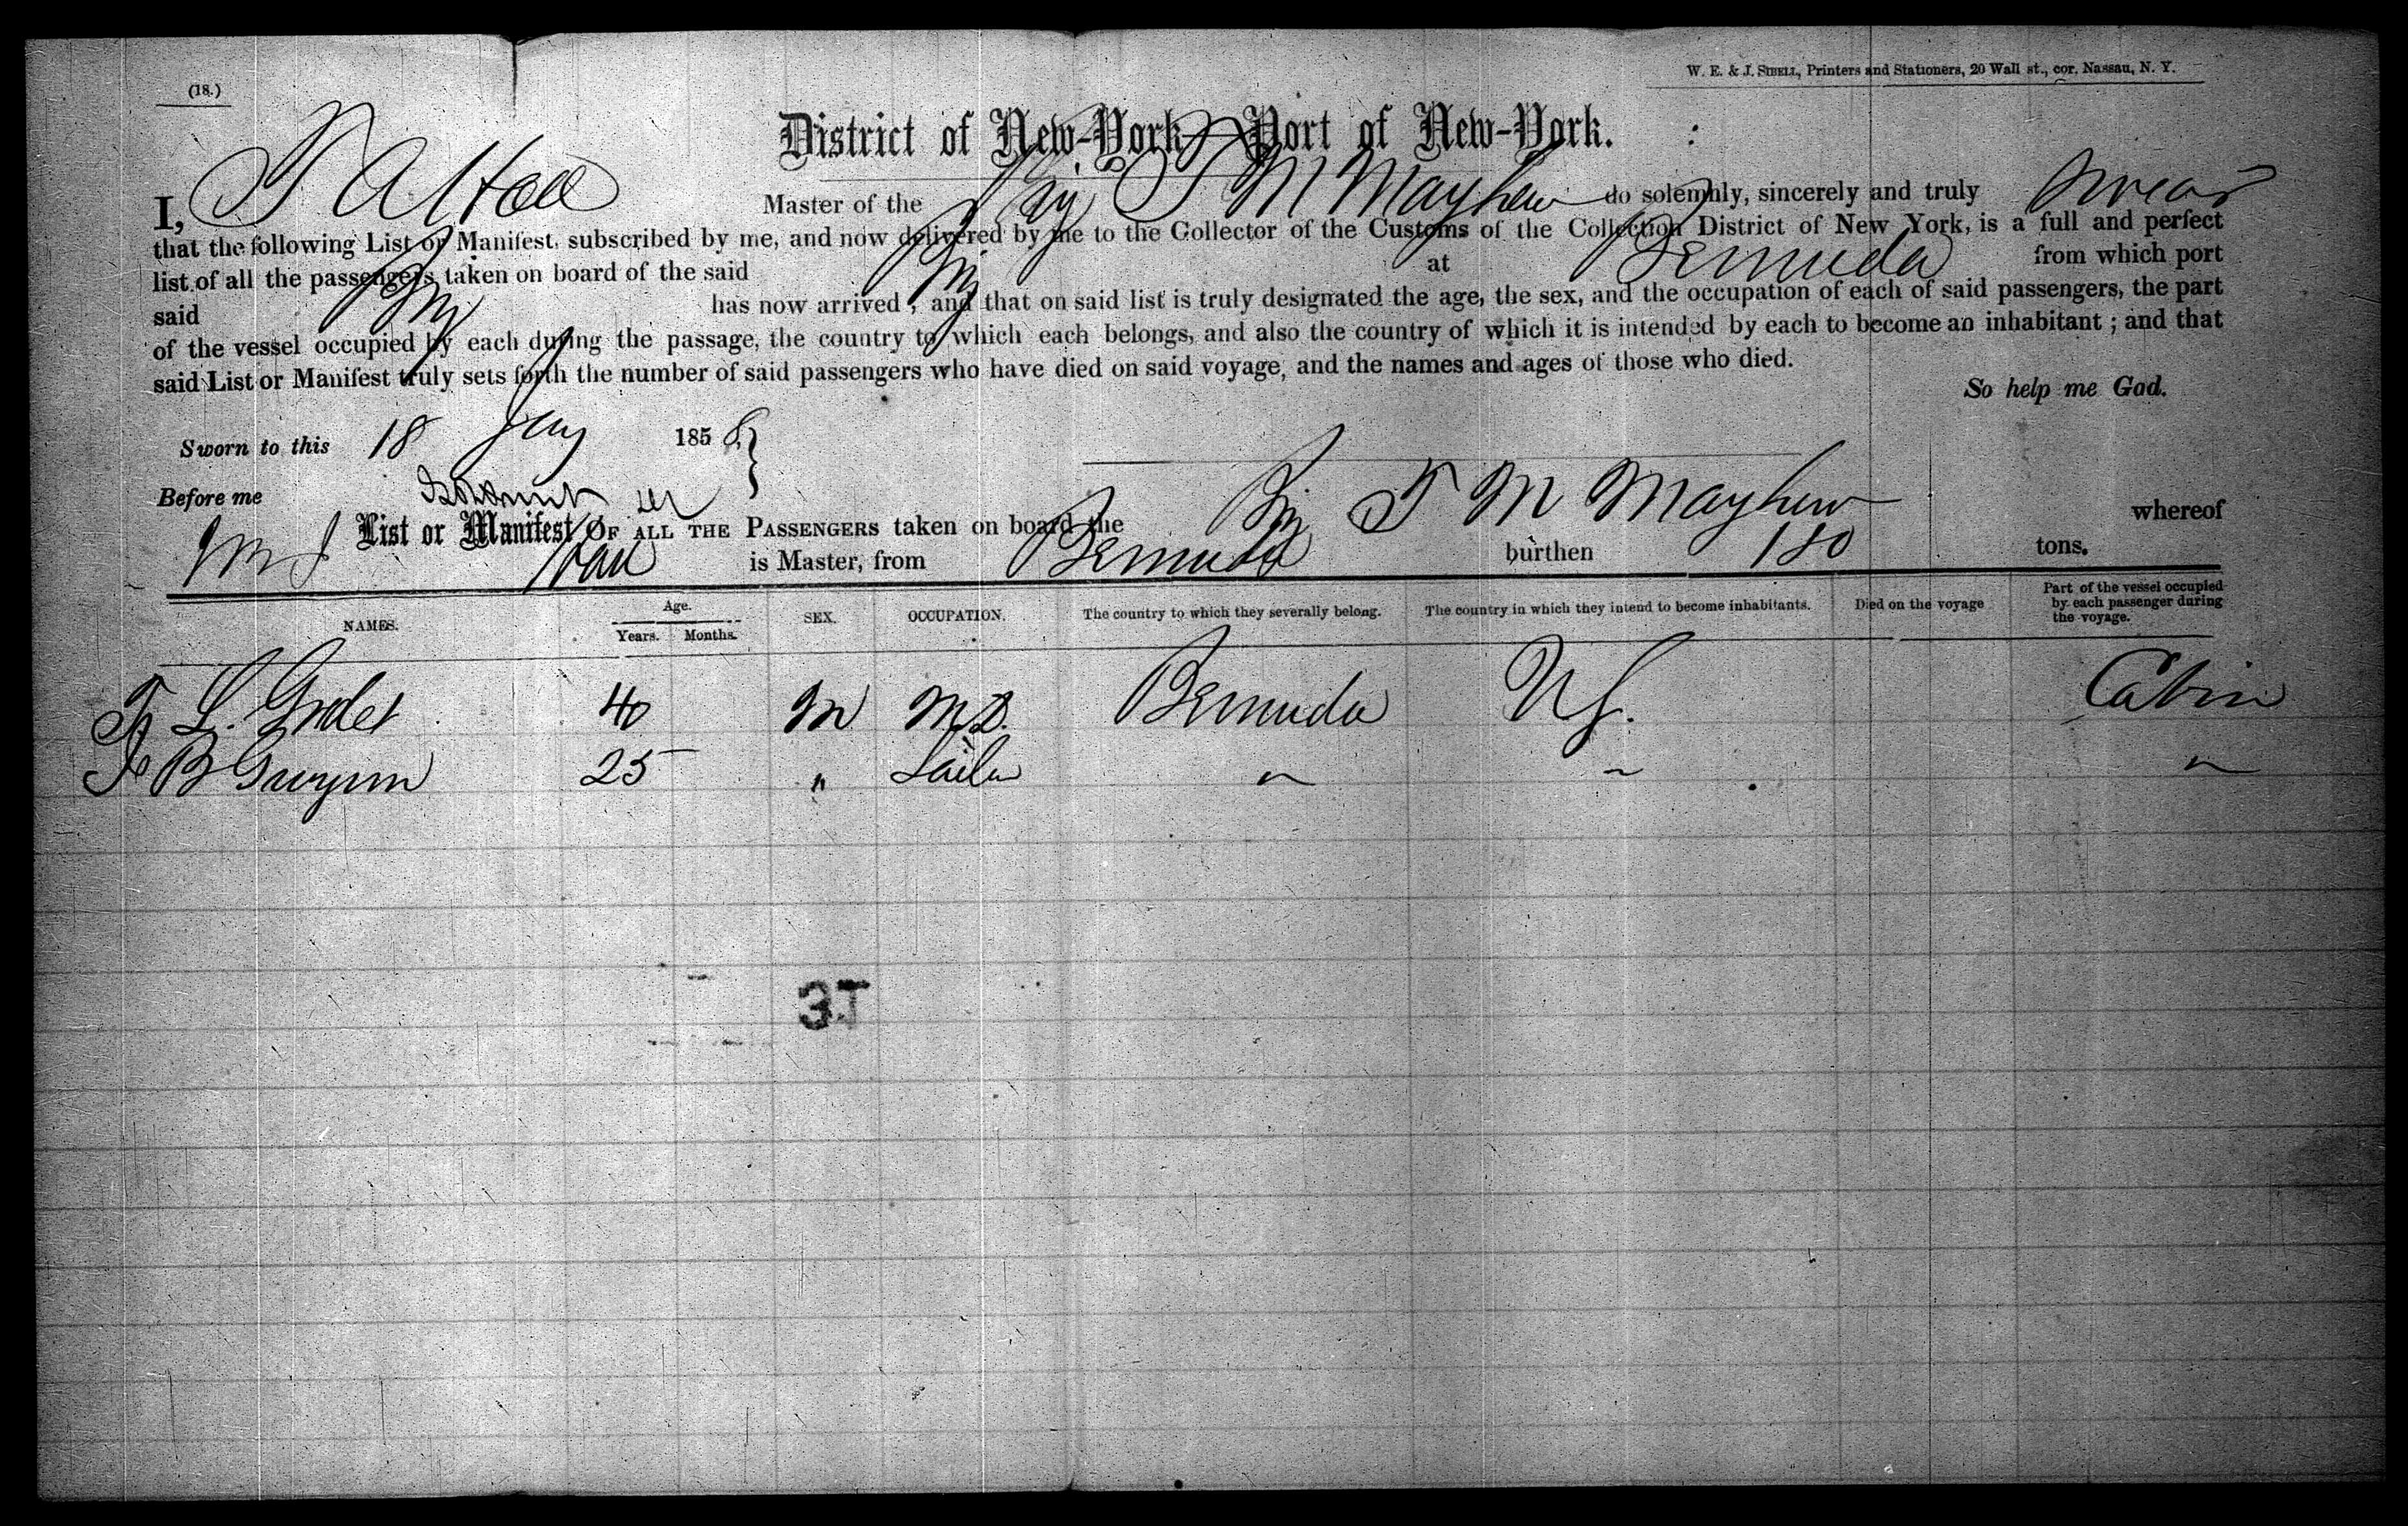 (18.)
W. E. & J. SIBELL, Printers and Stationers, 20 Wall st., cor. Nassau, N. Y.
District of New-York—Port of New-York.
I, Hall Master of the Brig T M Mayhew do solemnly, sincerely and truly swear
that the following List or Manifest, subscribed by me, and now delivered by me to the Collector of the Customs of the Collection District of New York, is a full and perfect
list of all the passengers taken on board of the said Brig at Bermuda from which port
said Brig has now arrived; and that on said list is truly designated the age, the sex, and the occupation of each of said passengers, the part
of the vessel occupied by each during the passage, the country to which each belongs, and also the country of which it is intended by each to become an inhabitant; and that
said List or Manifest truly sets forth the number of said passengers who have died on said voyage, and the names and ages of those who died.
So help me God.
Sworn to this 18 1858 }
Before me
List or Manifest OF ALL THE PASSENGERS taken on board the Brig T M Mayhew whereof
is Master, from Bermuda burthen 180 tons.
NAMES. Age. Years. Months. SEX. OCCUPATION. The country to which they severally belong. The country in which they intend to become inhabitants. Died on the voyage Part of the vessel occupied by each passenger during the voyage.
L. 40 M M.D. Bermuda U S. Cabin
B Gwynn 25 " " " "
37